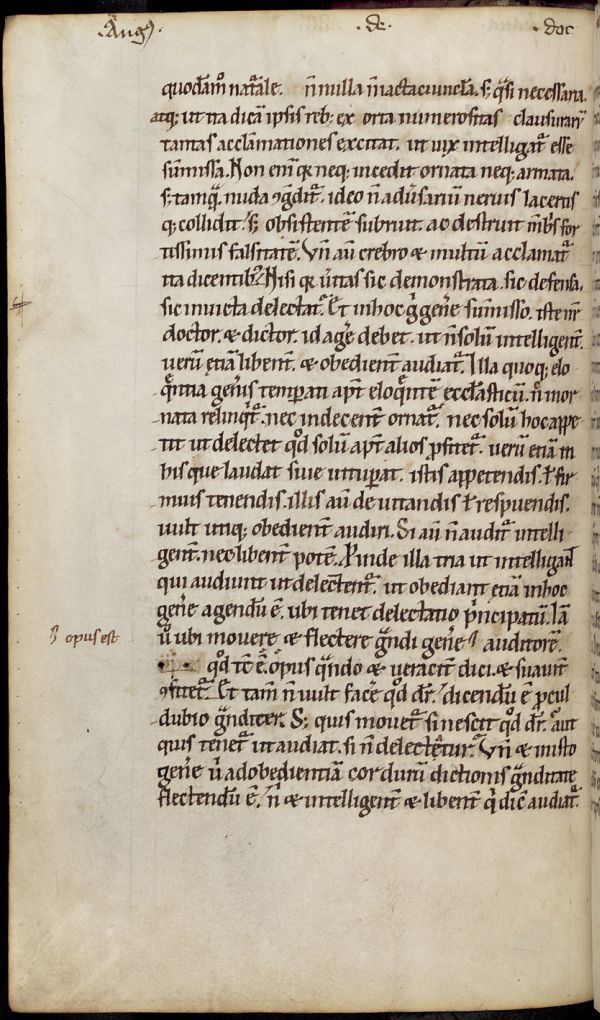 .Augꝰ. .de. .doc
quodāmͦ natᷓale. n̄ nulla n̄ iactaciuncl̄a. s; qᷓsi necessaria.
atq; ut ita dicā ipsis reb; ex orta numerositas clausurarꝫ
tantas acclamationes excitat. ut uix intelligatᷓ esse
sūmissa. Non enī q̄ neq; incedit ornata neq; armata.
s; tamqᷓ. nuda ꝯgᷓditᷓ. ideo n̄ adūsariū neruis lacertis
q; collidit. s; obsistentē subruit. ac destruit m̄bris for
tissimis falsitatē. Vn̄ aū crebro & multū acclamatᷓ
ita dicentibꝰ? Nisi q̄ ūitas sic demonstrata. sic defensa.
sic inuicta delectatᷓ. Et inhoc gᷓ gen̄e sūmisso. iste nr̄
doctor. & dictor. id agēe debet. ut n̄ solū intelligent̄.
uerū etiā libent̄. & obedient̄ audiatᷓ. Illa quoq; elo
qᷓntia gen̄is temp̄ati apt̄ eloqᷓntē ecclasticū. nͨ inor
nata relinqᷓtᷓ. nec indecent̄ ornatᷓ. nec solū hoc appe
tit ut delectet qd̄ solū apt̄ alios ꝓfitetᷓ. uerū etiā in
his que laudat siue uitup̄at. istis appetendis. ł fir
mius tenendis. illis aū deuitandis ł respuendis.
uult utiq; obedient̄ audiri. Si aū n̄ auditᷓ intelli
gent̄. nec libent̄ potē. Ꝓinde illa tria ut intelligant̄
qui audiunt ut delectent̄. ut obediant etiā inhoc
gen̄e agendū ē. ubi tenet delectatio pͥncipatū. Iā
ūͦ ubi mouere & flectere gᷓndi gen̄e auditorē.
opus est
qd̄ tc̄ ē. opus qᷓndo & ueracit̄ dici. & suauit̄
ꝯfitetᷓ. Et tam̄ n̄ uult facēe qd̄ dr̄. dicendū ē ꝓcul
dubio gᷓnditer. S; quis mouetᷓ si nescit qd̄ dr̄. aut
quis tenetᷓ ut audiat. si n̄ delectetur. Vn̄ & inisto
gen̄e ū adobedientiā cor durū dictionis gᷓnditate
flectendū ē. n̄ & intelligent̄ & libent̄ qͥ dic̄ audiatᷓ.